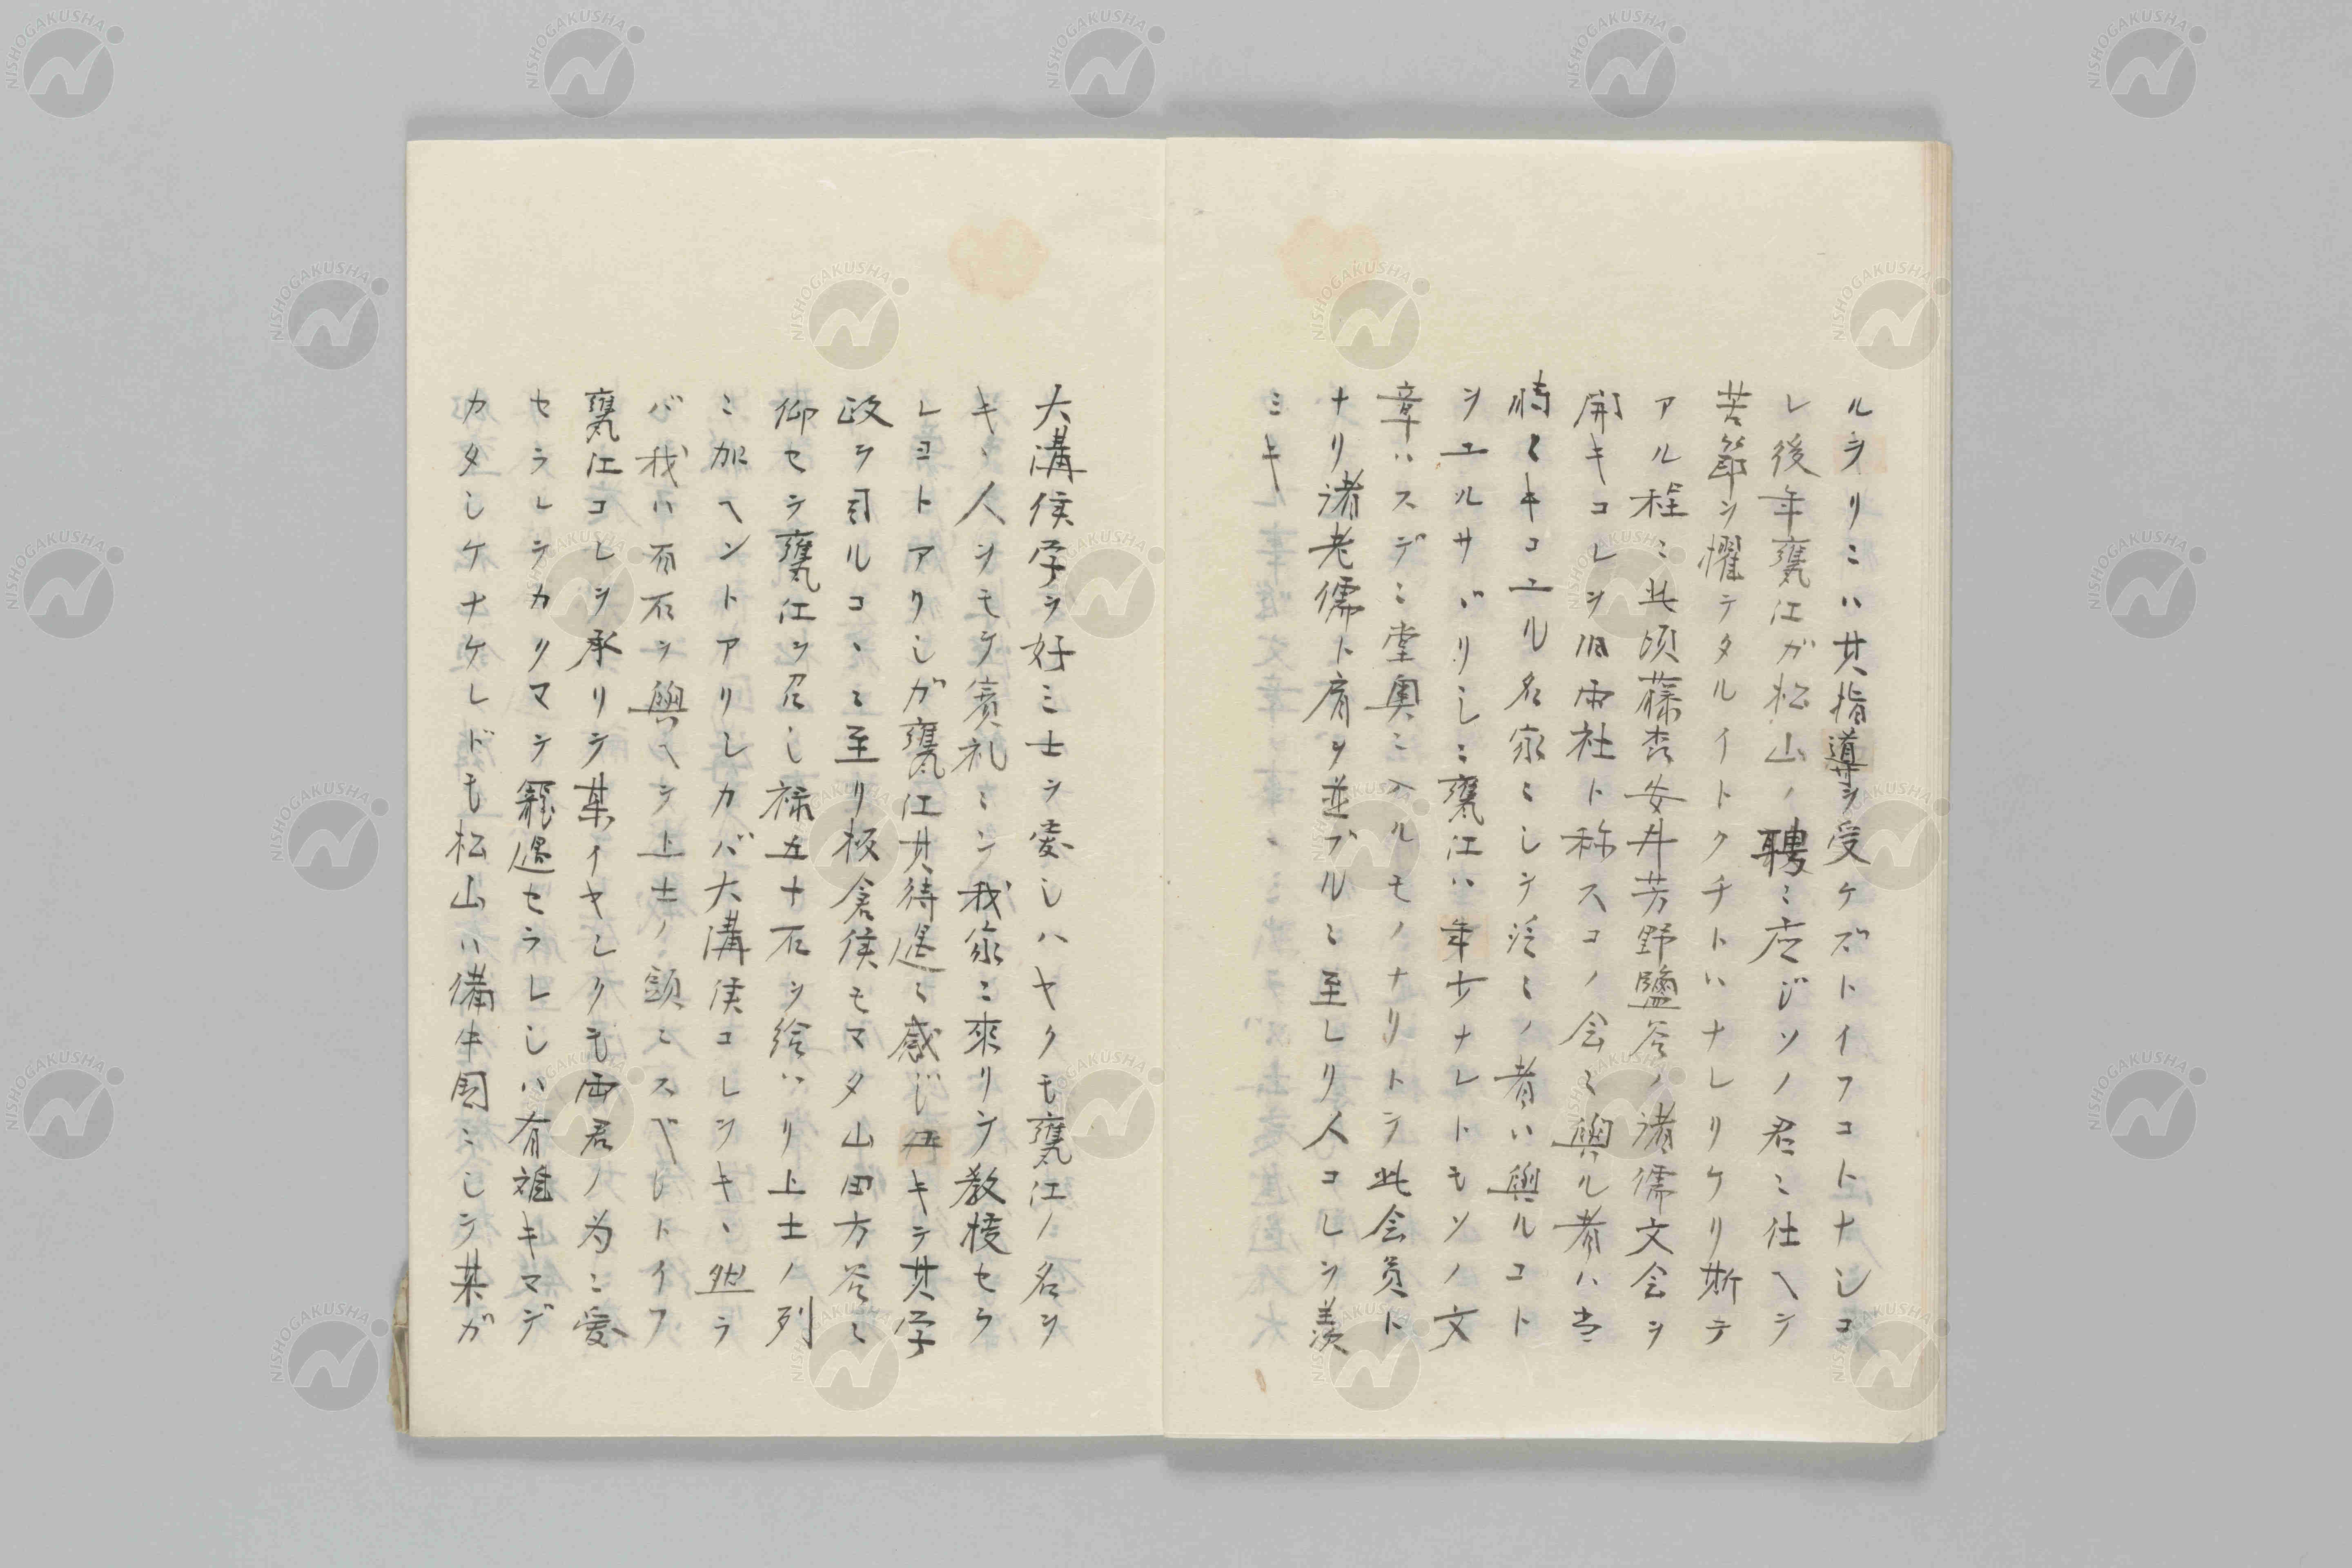 ルヲリニハ其指導ヲ受ケズトイフコトナシコ
レ後年甕江ガ松山ノ聘ニ応ジソノ君ニ仕ヘテ
苦節ヲ懼テタルイトクチトハナレリケリ斯テ
アル程ニ此頃藤森安井芳野鹽谷ノ諸儒文会ヲ
開キコレヲ旧雨社ト称スコノ会ニ與ル者ハ当
時ニキコエル名家ニシテ泛ミノ者ハ與ルコト
ヲエルサバリシニ甕江ハ年少ナレトモソノ文
章ハスデニ堂奥ニ入ルモノナリトテ此会員ト
ナリ諸老儒ト肩ヲ並ブルニ至レリ人コレヲ羨
ミキ
大溝侯学ヲ好ミ士ヲ愛シハヤクモ甕江ノ名ヲ
キヽ人ヲモテ賓礼ミヲ我家ニ来リテ教授セラ
レコトアリシガ甕江其待遇ニ感ジ遊キテ其学
政ヲ司ルコヽニ至リ板倉侯モマタ山田方谷ニ
仰セテ甕江ヲ召シ禄五十石ヲ給ハリ上士ノ列
ニ加ヘントアリシカバ大溝侯コレヲキヽ然ラ
バ我ハ百石ヲ與ヘテ上士ノ頭ニスベシトイフ
甕江コレヲ承リテ某イヤシクモ両君ノ為ニ愛
セラレテカクマデ寵遇セラレシハ有難キマデ
カタシケナケレドモ松山ハ備中国ニシテ某ガ
NISHOGAKUSHA